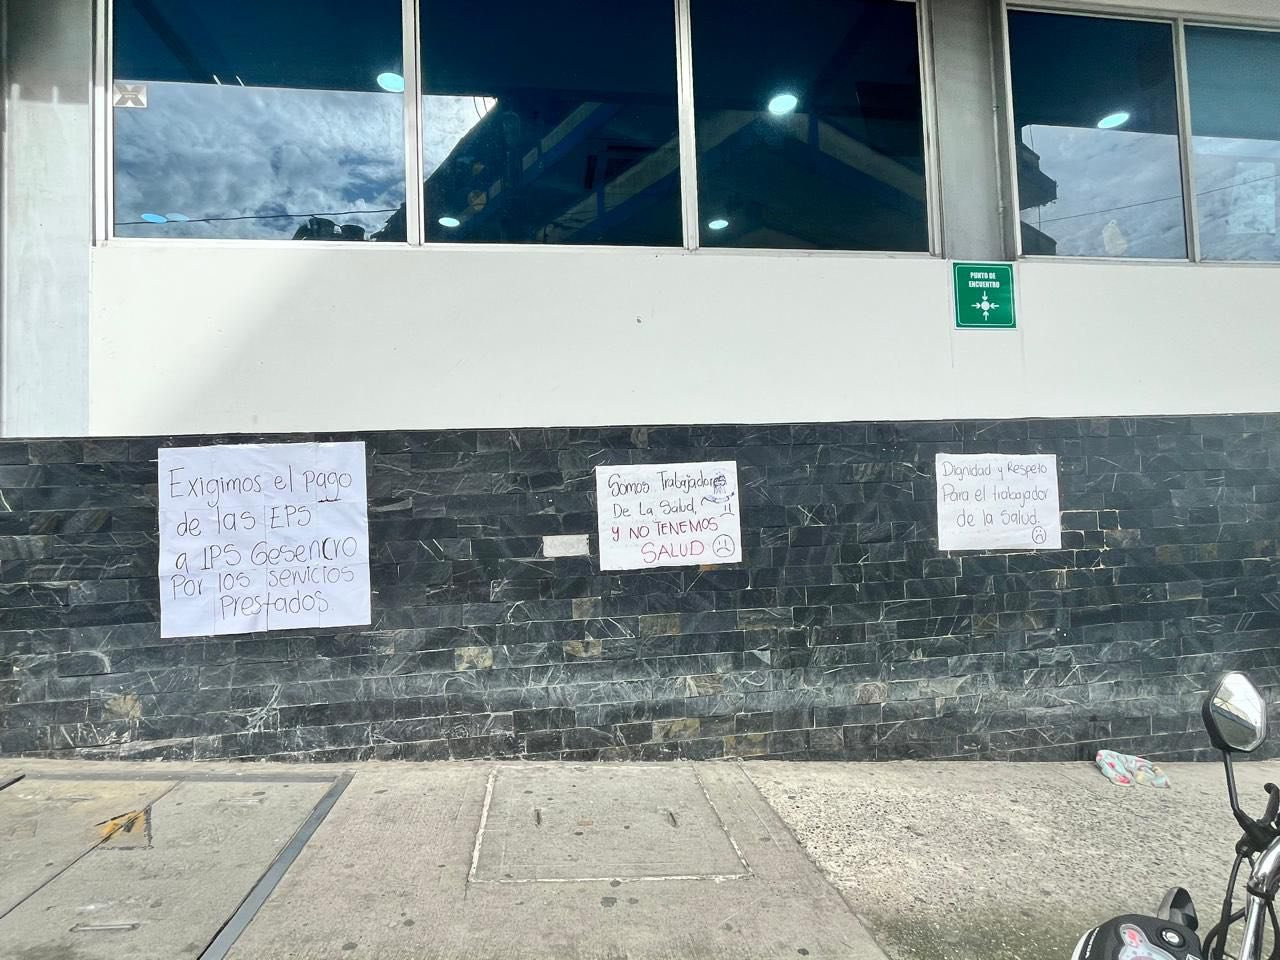 PUNTO DE
ENCUENTRO
Exigimos el pago
de las EPS
a IPS Gesencro
Por los servicios
Prestados.
Somos Trabajadores
De La Salud,
y NO TENEMOS
SALUD
Dignidad y Respeto
Para el trabajador
de la salud.